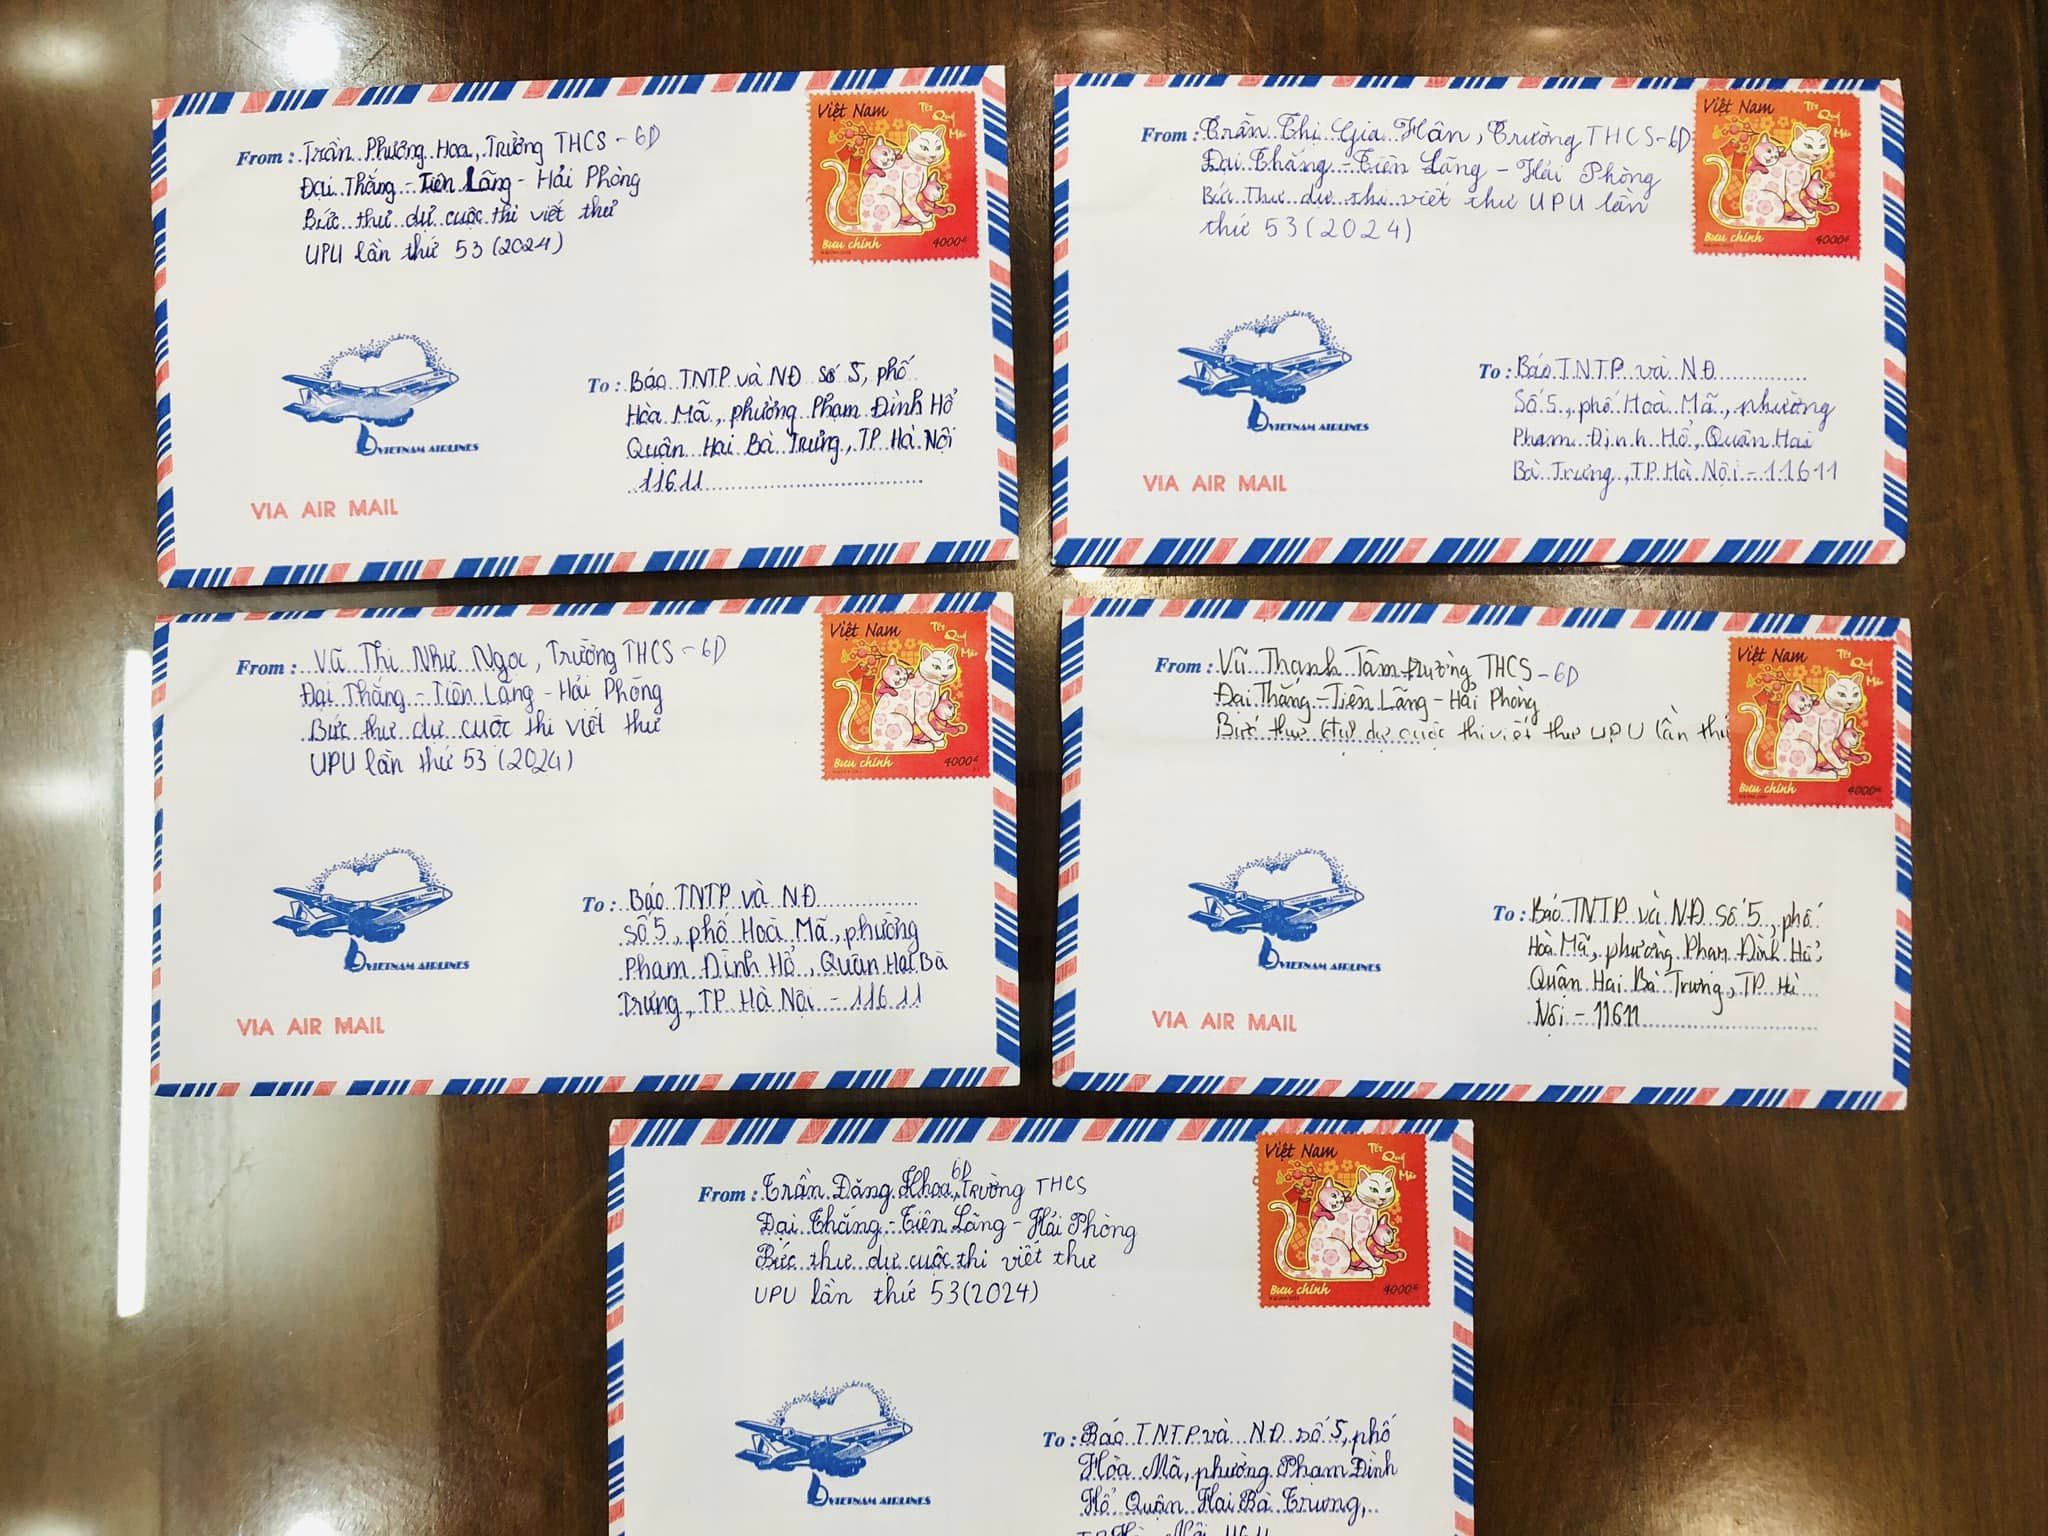 From: Trần Phương Hoa, Trường THCS - 6D
Đại Thắng - Tiên Lãng - Hải Phòng
Bức thư dự cuộc thi viết thư
UPU lần thứ 53 (2024)
Việt Nam
Tết Quý Mão
Bưu chính 4000đ
VIETNAM AIRLINES
To: Báo TNTP và NĐ số 5, phố
Hòa Mã, phường Phạm Đình Hổ
Quận Hai Bà Trưng, TP Hà Nội
11611
VIA AIR MAIL
From: Trần Thị Gia Hân, Trường THCS - 6D
Đại Thắng - Tiên Lãng - Hải Phòng
Bức thư dự thi viết thư UPU lần
thứ 53 (2024)
Việt Nam
Tết Quý Mão
Bưu chính 4000đ
VIETNAM AIRLINES
To: Báo TNTP và NĐ
Số 5, phố Hoà Mã, phường
Phạm Định Hổ, Quân Hai
Bà Trưng, TP. Hà Nội - 11611
VIA AIR MAIL
From: Vũ Thị Như Ngọc, Trường THCS - 6D
Đại Thắng - Tiên Lãng - Hải Phòng
Bức thư dự cuộc thi viết thư
UPU lần thứ 53 (2024)
Việt Nam
Tết Quý Mão
Bưu chính 4000đ
VIETNAM AIRLINES
To: Báo TNTP và NĐ
Số 5, phố Hoà Mã, phường
Phạm Đình Hổ, Quân Hai Bà
Trưng, TP Hà Nội - 11611
VIA AIR MAIL
From: Vũ Thanh Tâm trường THCS - 6D
Đại Thắng - Tiên Lãng - Hải Phòng
Bức thư dự cuộc thi viết thư UPU lần thứ
Việt Nam
Tết Quý Mão
Bưu chính 4000đ
VIETNAM AIRLINES
To: Báo TNTP và NĐ Số 5, phố
Hoà Mã, phường Phạm Đình Hổ,
Quân Hai Bà Trưng, TP Hà
Nội - 11611
VIA AIR MAIL
6D
From: Trần Đăng Khoa, Trường THCS
Đại Thắng - Tiên Lãng - Hải Phòng
Bức thư dự cuộc thi viết thư
UPU lần thứ 53 (2024)
Việt Nam
Tết Quý Mão
Bưu chính 4000đ
VIETNAM AIRLINES
To: Báo TNTP và NĐ số 5, phố
Hòa Mã, phường Phạm Đình
Hổ Quận Hai Bà Trưng,
TP Hà Nội 11611